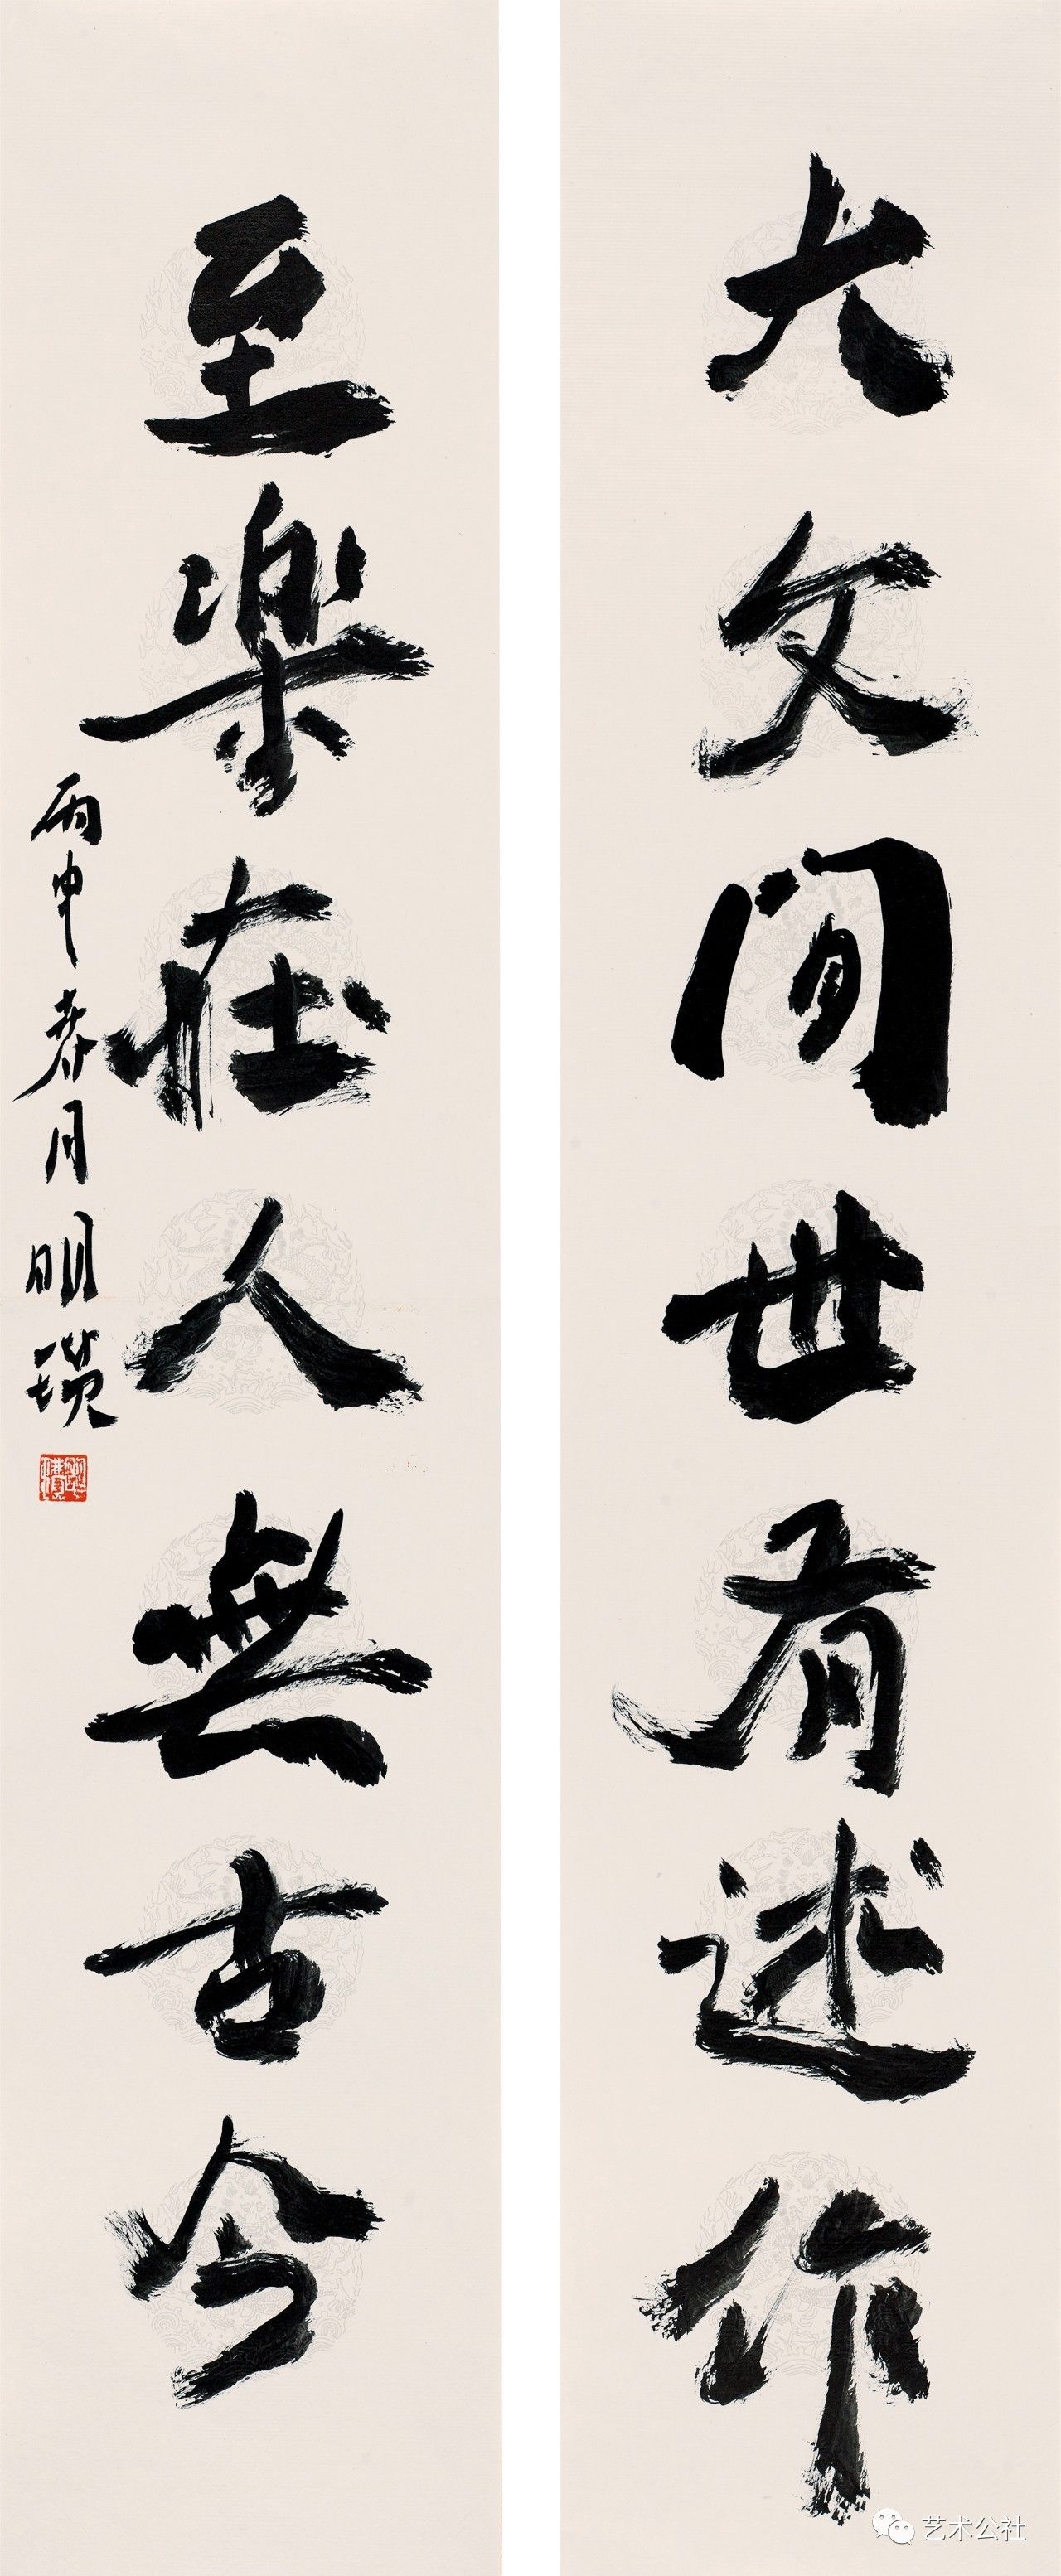 大文間世有述作
至樂在人無古今
丙申春月 明
艺术公社